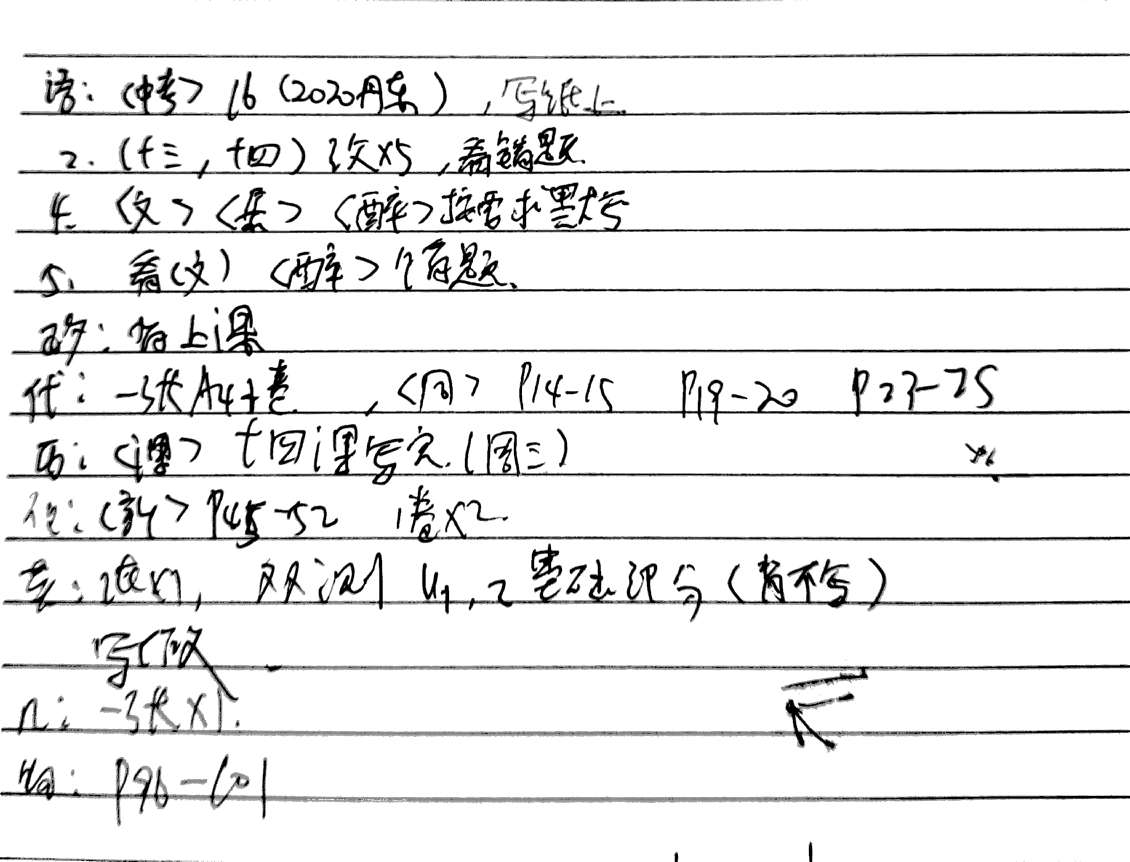 语：〈中考〉16（2020丹东），写纸上
2.（十三，十四）改×5，看错题
4.〈文〉〈〉〈醉〉按要求默写
5、看〈文〉〈醉〉有题、
政：背上课
代：一张A4卷，〈同〉P14-15 P19-20 P23-25
历：〈课〉十四课写完.（周三）
〈新〉P45-52 卷×2.
英：×1，双测 U1，2基础部分（背不写）
写作改
几：一张×1.
物：P96-101